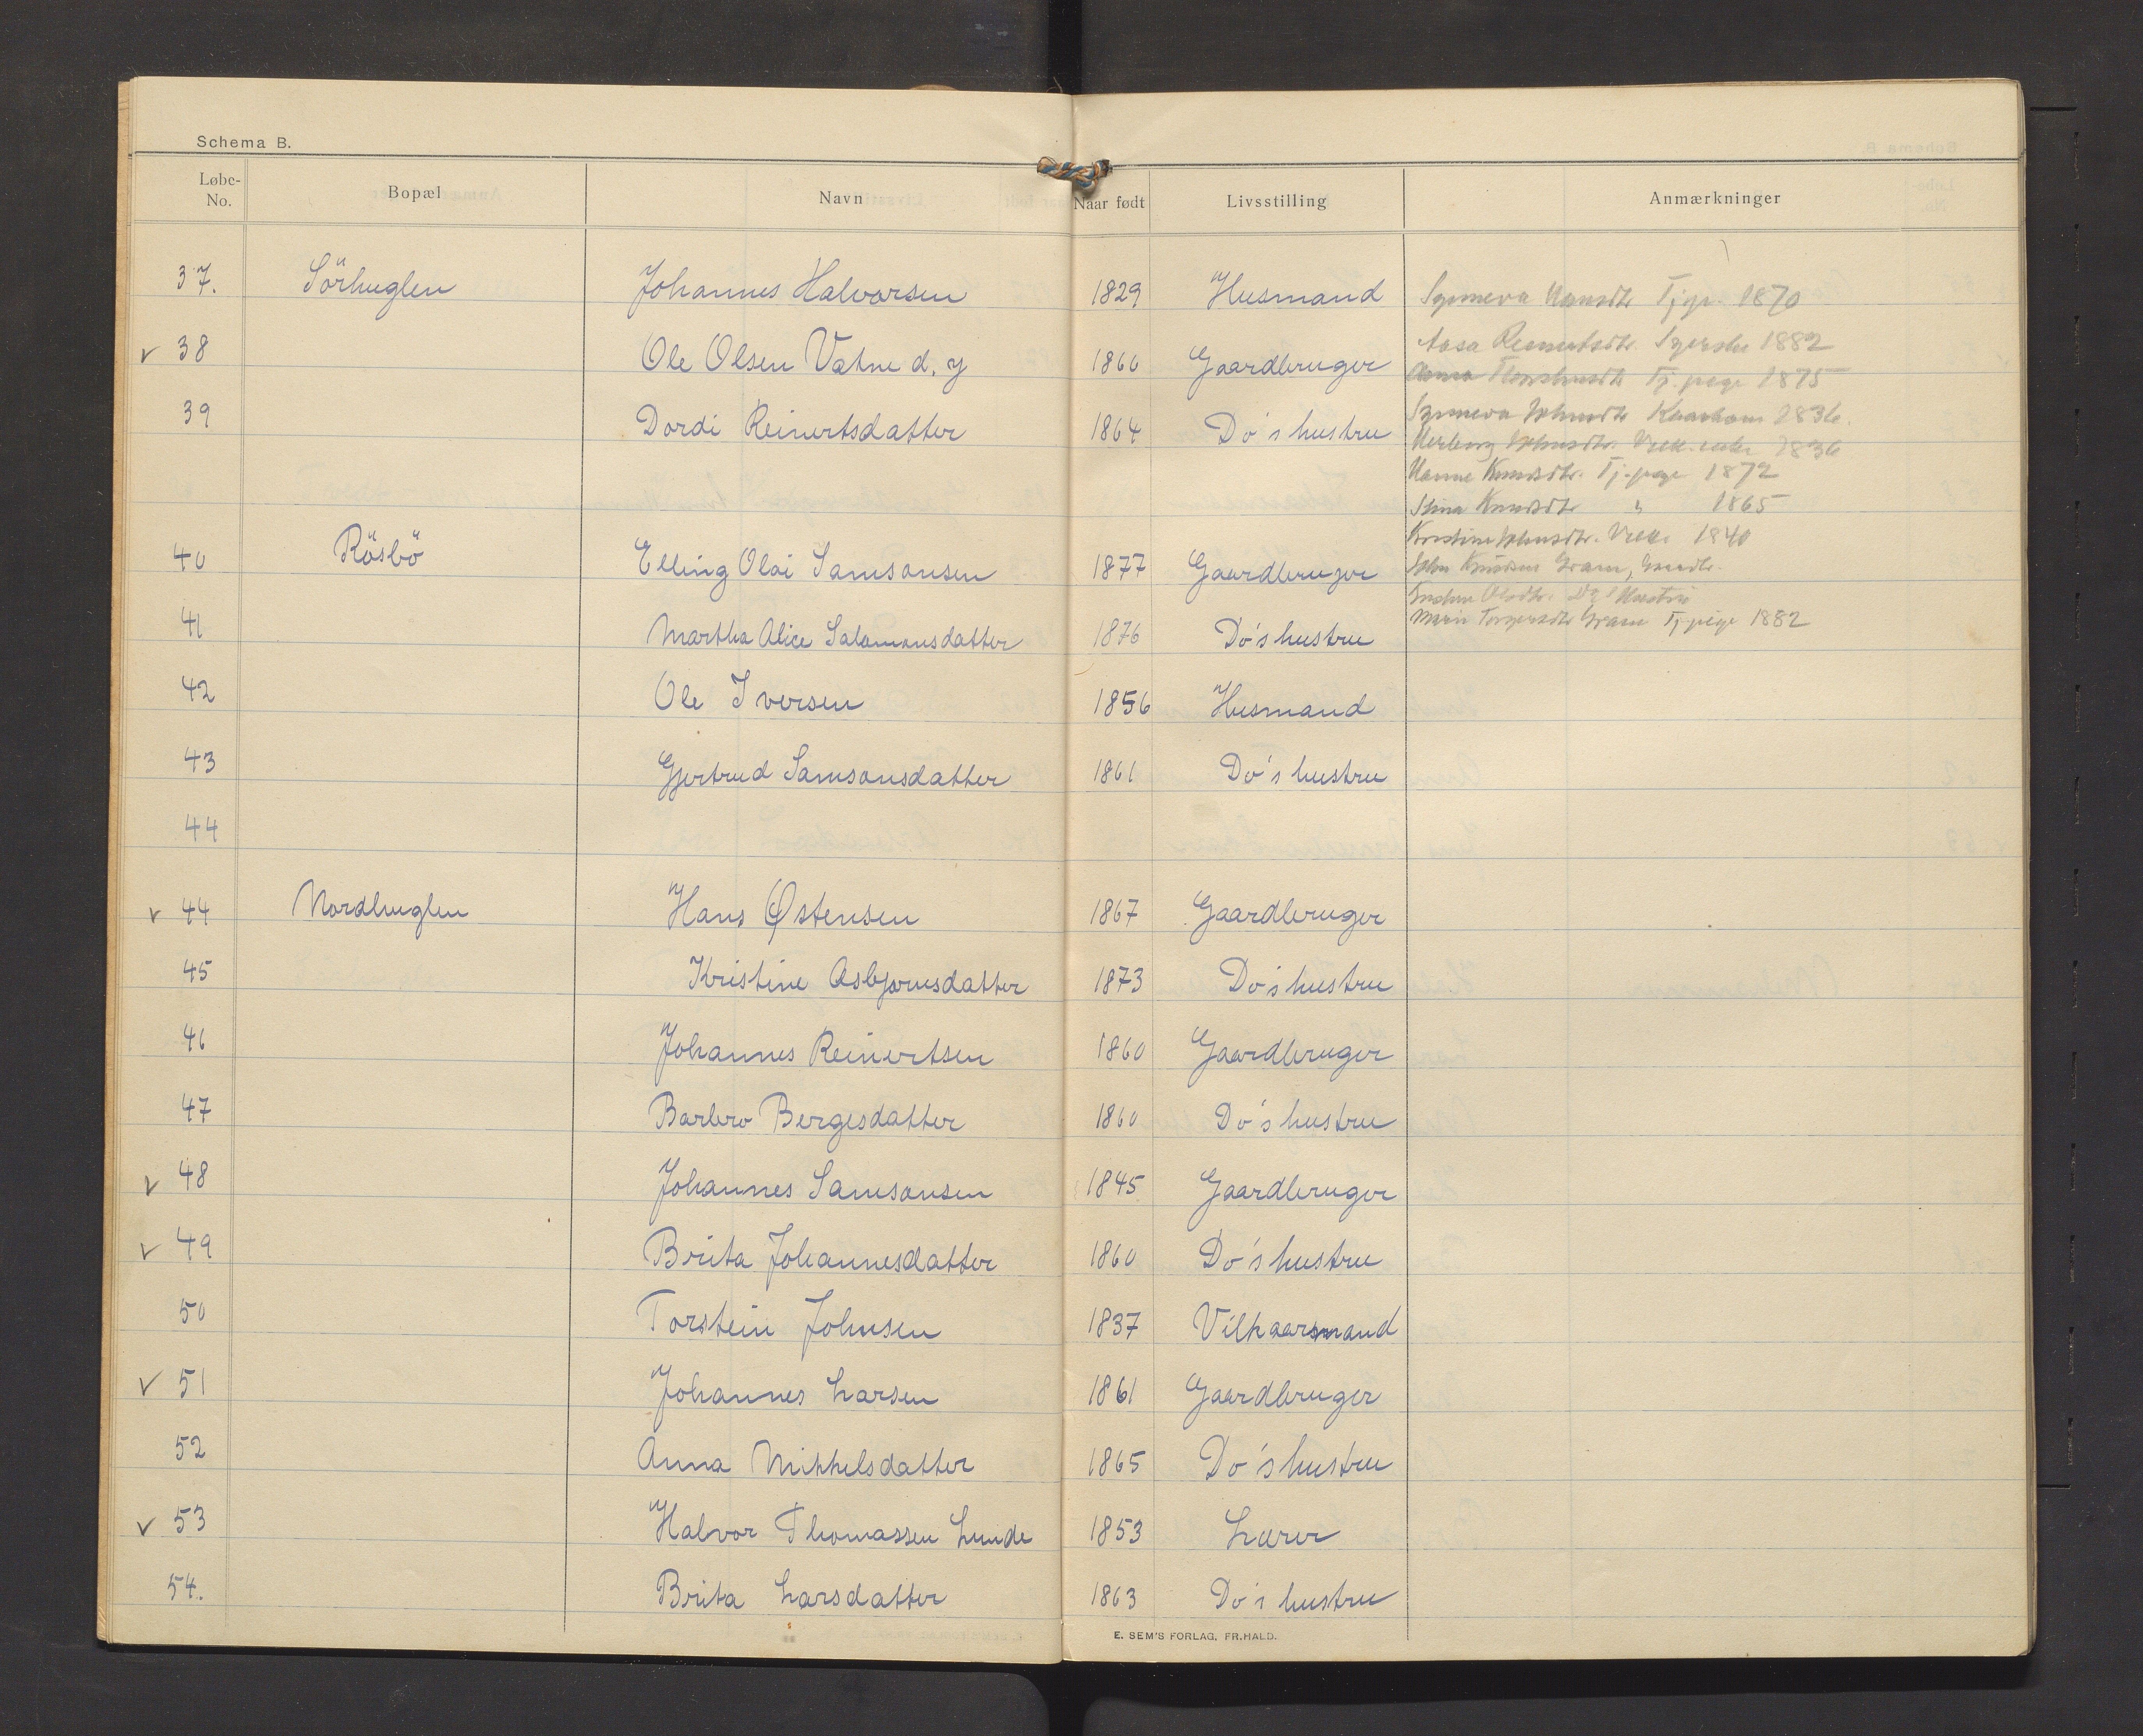 Schema B.
Løbe-No. Bopæl Navn Naar født Livsstilling Anmærkninger
37. Sörhuglen Johannes Halvorsen 1829 Husmand
Tj.p. 1870
38 Ole Olsen Vatne d. y 1860 Gaardbruger
Aasa 1882
Tj. pige 1875
39 Dordi Reinertsdatter 1864 Do's hustru
1836.
1836
Hanne Knudsdtr. Tj. pige 1872
Stina Knudsdtr " 1865
Kristine Johnsdtr. 1840
40 Rösbö Elling Olai Samsonsen 1877 Gaardbruger
John Knudsen Gram,
Olsdtr. Do's Hustru
Marie Torgersdtr Gram Tj. pige 1882
41 Martha Alice Salamonsdatter 1876 Do's hustru
42 Ole Iversen 1856 Husmand
43 Gjertrud Samsonsdatter 1861 Do's hustru
44
44 Nordhuglen Hans Østensen 1867 Gaardbruger
45 Kristine Asbjørnsdatter 1873 Do's hustru
46 Johannes Reinertsen 1860 Gaardbruger
47 Barbro Bergesdatter 1860 Do's hustru
48 Johannes Samsonsen 1845 Gaardbruger
49 Brita Johannesdatter 1860 Do's hustru
50 Torstein Johnsen 1837 Vilkaarsmand
51 Johannes Larsen 1861 Gaardbruger
52 Anna Mikkelsdatter 1865 Do's hustru
53 Halvor Thomassen Lunde 1853 Lærer
54. Brita Larsdatter 1863 Do's hustru
E. SEM'S FORLAG, FR.HALD.